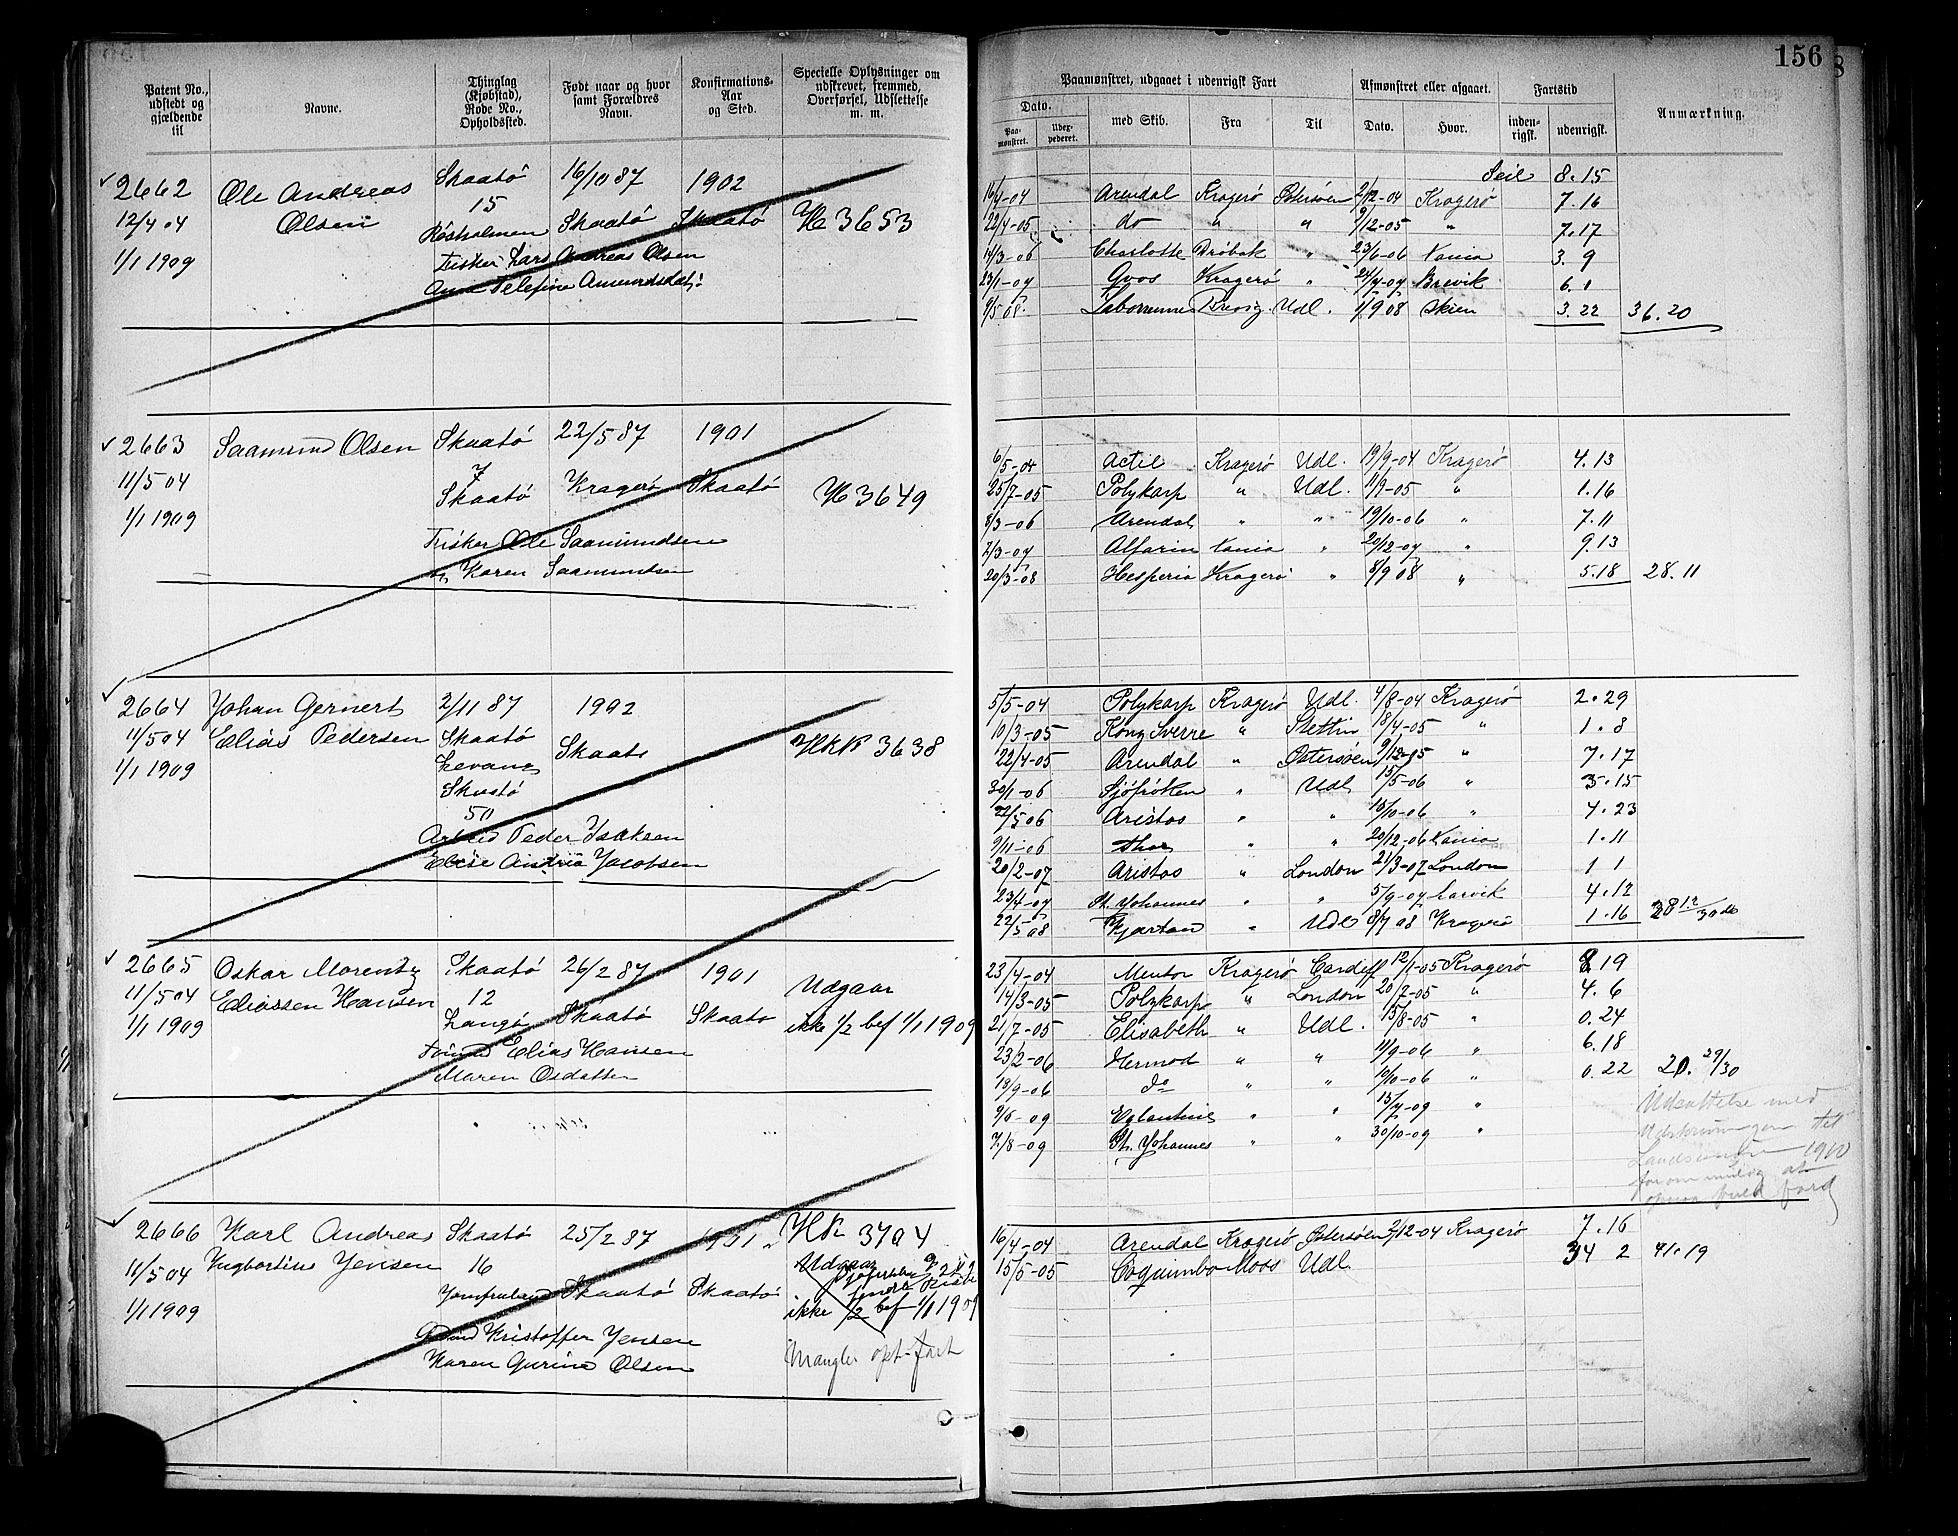 156
Patent No., udstedt og gjældende til
Navne.
Thinglag (Kjøbstad), Rode No., Opholdssted.
Født naar og hvor samt Forældres Navn.
Konfirmations-Aar og Sted.
Specielle Oplysninger om udskrevet, fremmed, Overførsel, Udslettelse m. m.
Paamønstret, udgaaet i udenrigsk Fart
Afmønstret eller afgaaet.
Fartstid
Anmærkning.
Dato.
Paamønstret.
Udexpederet.
med Skib.
Fra
Til
Dato.
Hvor.
indenrigsk.
udenrigsk.
2662 Ole Andreas Skaatö 16/10 87 1902
12/4 04 Olsen 15 Skaatö Skaatö H 3653
1/1 1909 Fisker Lars Andreas Olsen
Seil 8.15
16/4-04 Arendal Kragerö Östersöen 2/12-04 Kragerö 7.16
22/4-05 do " " 9/12-05 " 7.17
14/3-06 Charlotte Dröbak " 23/6-06 Xania 3.9
23/1-07 Kragerö " Brevik 6.1
9/5 08 Udl. 1/9 08 Skien 3.22 36.20
2663 Saamund Olsen Skaatö 22/5 87 1901
11/5 04 7 Skaatö Kragerö Skaatö H 3649
1/1 1909
Fisker Ole Saamundsen
Karen Saamundsen
6/5-04 Actil Kragerö Udl. 19/9-04 Kragerö 4.13
25/7-05 Polykarp " Udl. 11/9-05 " 1.16
8/3-06 Arendal " " 19/10-06 " 7.11
2/3-07 Alfarin Xania " 20/12-07 " 9.13
20/3-08 Hesperia Kragerö " 8/9 08 " 5.18 28.11
2664 Johan Gernert 2/11 87 1902
11/5 04 Elias Pedersen Skaatö Skaatö 3638
1/1 1909 Levang
Skaatö
50
Arbeid Peder Isaksen
Elise Andrea Jacobsen
5/5-04 Polykarp Kragerö Udl. 4/8-04 Kragerö 2.29
10/3-05 Kong Sverre " Stettin 18/4-05 " 1.8
22/4-05 Arendal " Östersöen 9/12-05 " 7.17
20/1-06 Sjöfröken " Udl 15/5-06 " 3.15
22/5 06 Aristos " " 15/10-06 " 4.23
9/11-06 Thor " " 20/12-06 Xania 1.11
20/2-07 Aristos " London 21/3-07 London 1 1
23/4-07 St. Johannes " " 5/9-07 Larvik 4.12
22/5 08 Kjartan " Udl 8/7 08 Kragerö 1.16 28 12/30
2665 Oskar Morentz Skaatö 26/2 87 1901
11/5 04 Eliassen Hansen 12 Udgaar
1/1 1909 Langö Skaatö Skaatö ikke 1/2 bef 1/1 1909
Elias Hansen
Maren Osdatter
23/4-04 Mentor Kragerö Cardiff 12/1-05 Kragerö 8 19
14/3-05 Polykarp " London 20/7-05 " 4.6
21/7-05 Elisabeth " Udl. 15/8-05 " 0.24
23/2-06 Hermod " " 11/9-06 " 6.18
19/9-06 do " " 10/10-06 " 0.22 20. 29/30
9/6-09 Eglantine " " 15/7-09 "
7/8-09 St. Johannes " " 30/10-09 "
Udsættelse med
Udskrivningen til
1910
2666 Karl Andreas Skaatö 25/2 87 1901 3704
11/5 04 Ingbortius Jensen 16 Udgaar
1/1 1909 Jomfruland Skaatö Skaatö ikke 1/2 bef 1/1 1909
Kristoffer Jensen
Karen Gurine Olsen
Mangler opt. fart
16/4-04 Arendal Kragerö Östersöen 2/12-04 Kragerö 7.16
15/5-05 Coquimbo Moss Udl. 34 2 41.19